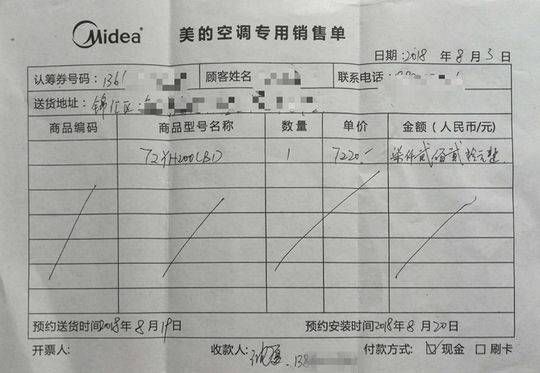 Midea 美的空调专用销售单
日期:2018年8月5日
认筹券号码:1361 顾客姓名 联系电话:
送货地址:锦江区
商品编码 商品型号名称 数量 单价 金额(人民币/元)
72YH200(B1) 1 7220- 柒仟贰佰贰拾元整
预约送货时间2018年8月19日 预约安装时间2018年8月20日
开票人: 收款人: 138 付款方式: ☑现金 □刷卡